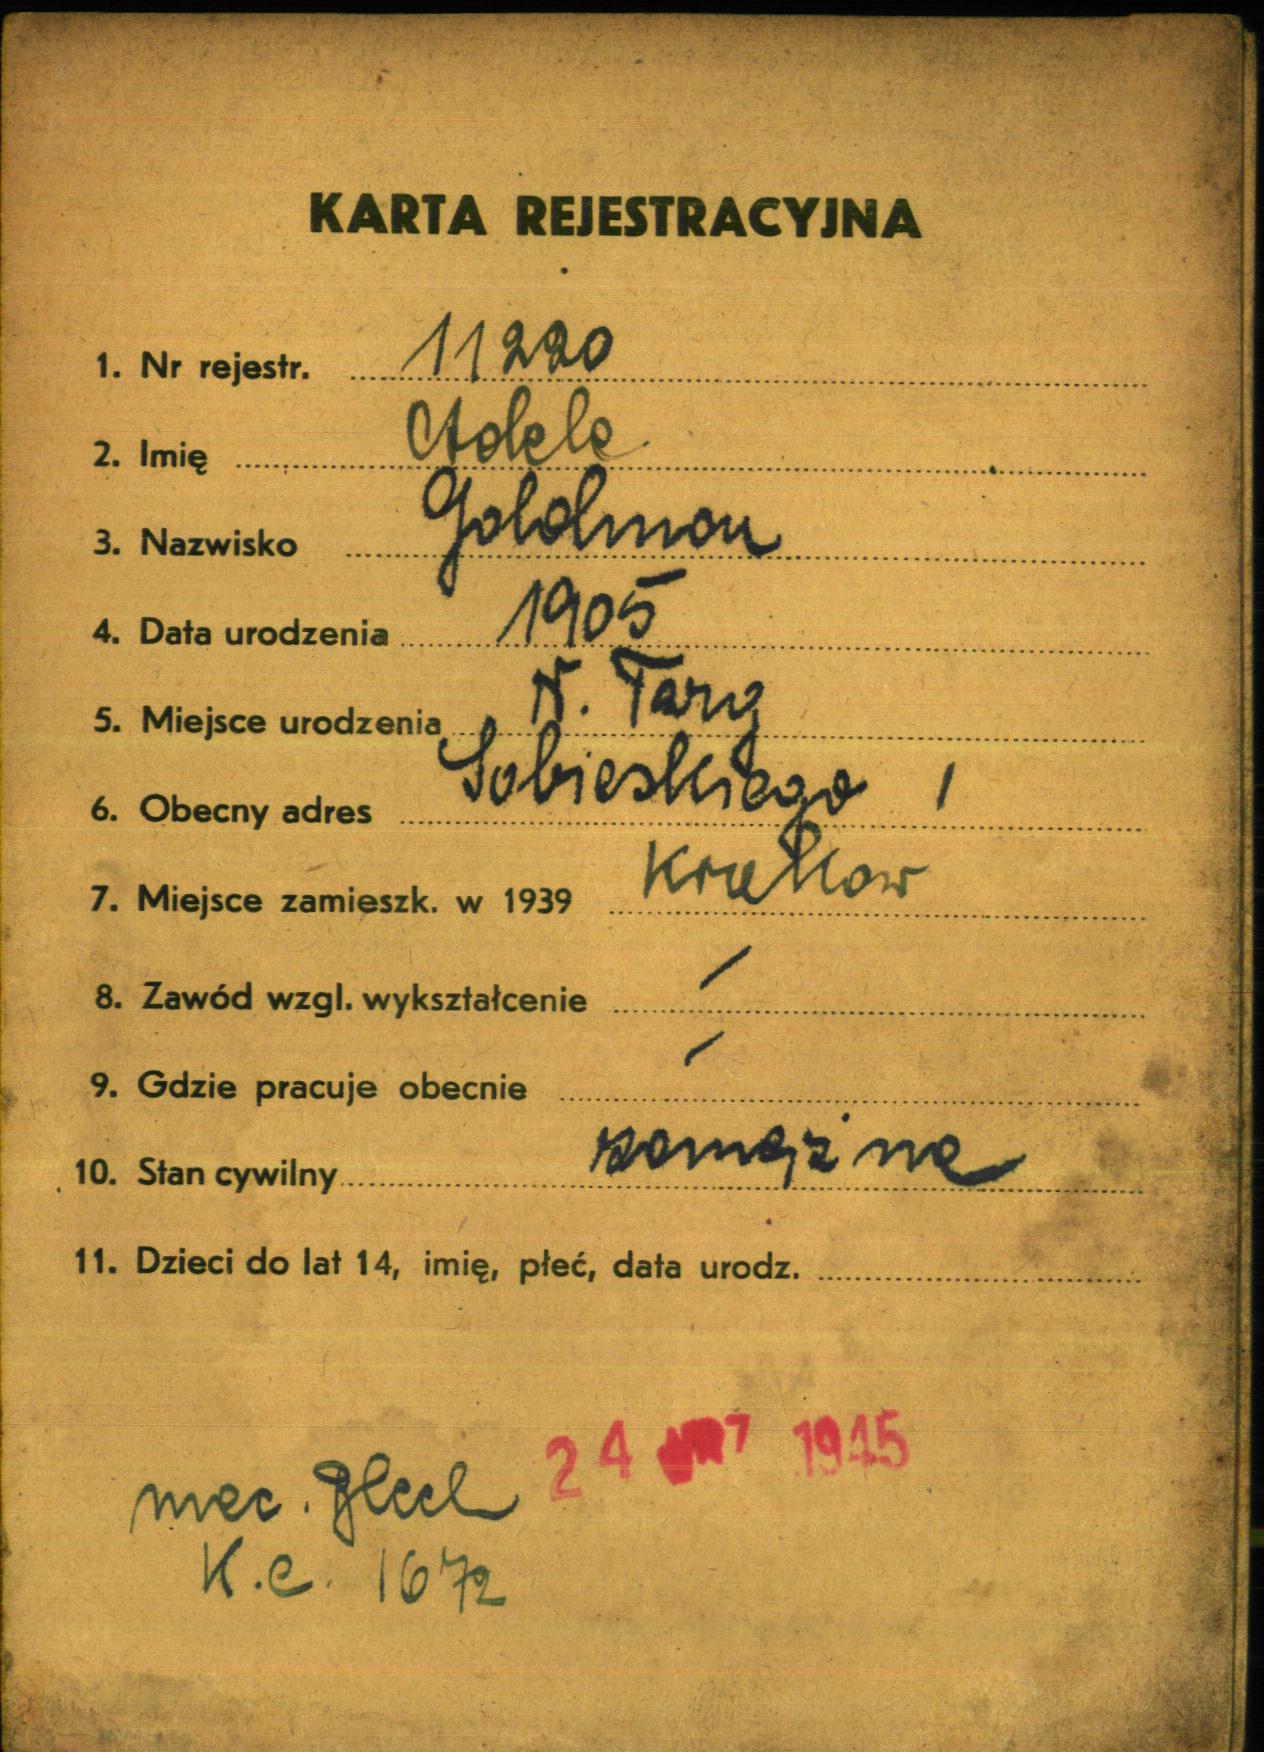 KARTA REJESTRACYJNA
1. Nr rejestr. 11220
2. Imię Adela
3. Nazwisko Goldman
4. Data urodzenia 1905
5. Miejsce urodzenia N. Targ
6. Obecny adres Sobieskiego 1
7. Miejsce zamieszk. w 1939 Krakow
8. Zawód wzgl. wykształcenie /
9. Gdzie pracuje obecnie /
10. Stan cywilny zamężna
11. Dzieci do lat 14, imię, płeć, data urodz.
24 1945
mec.
K.c. 1672